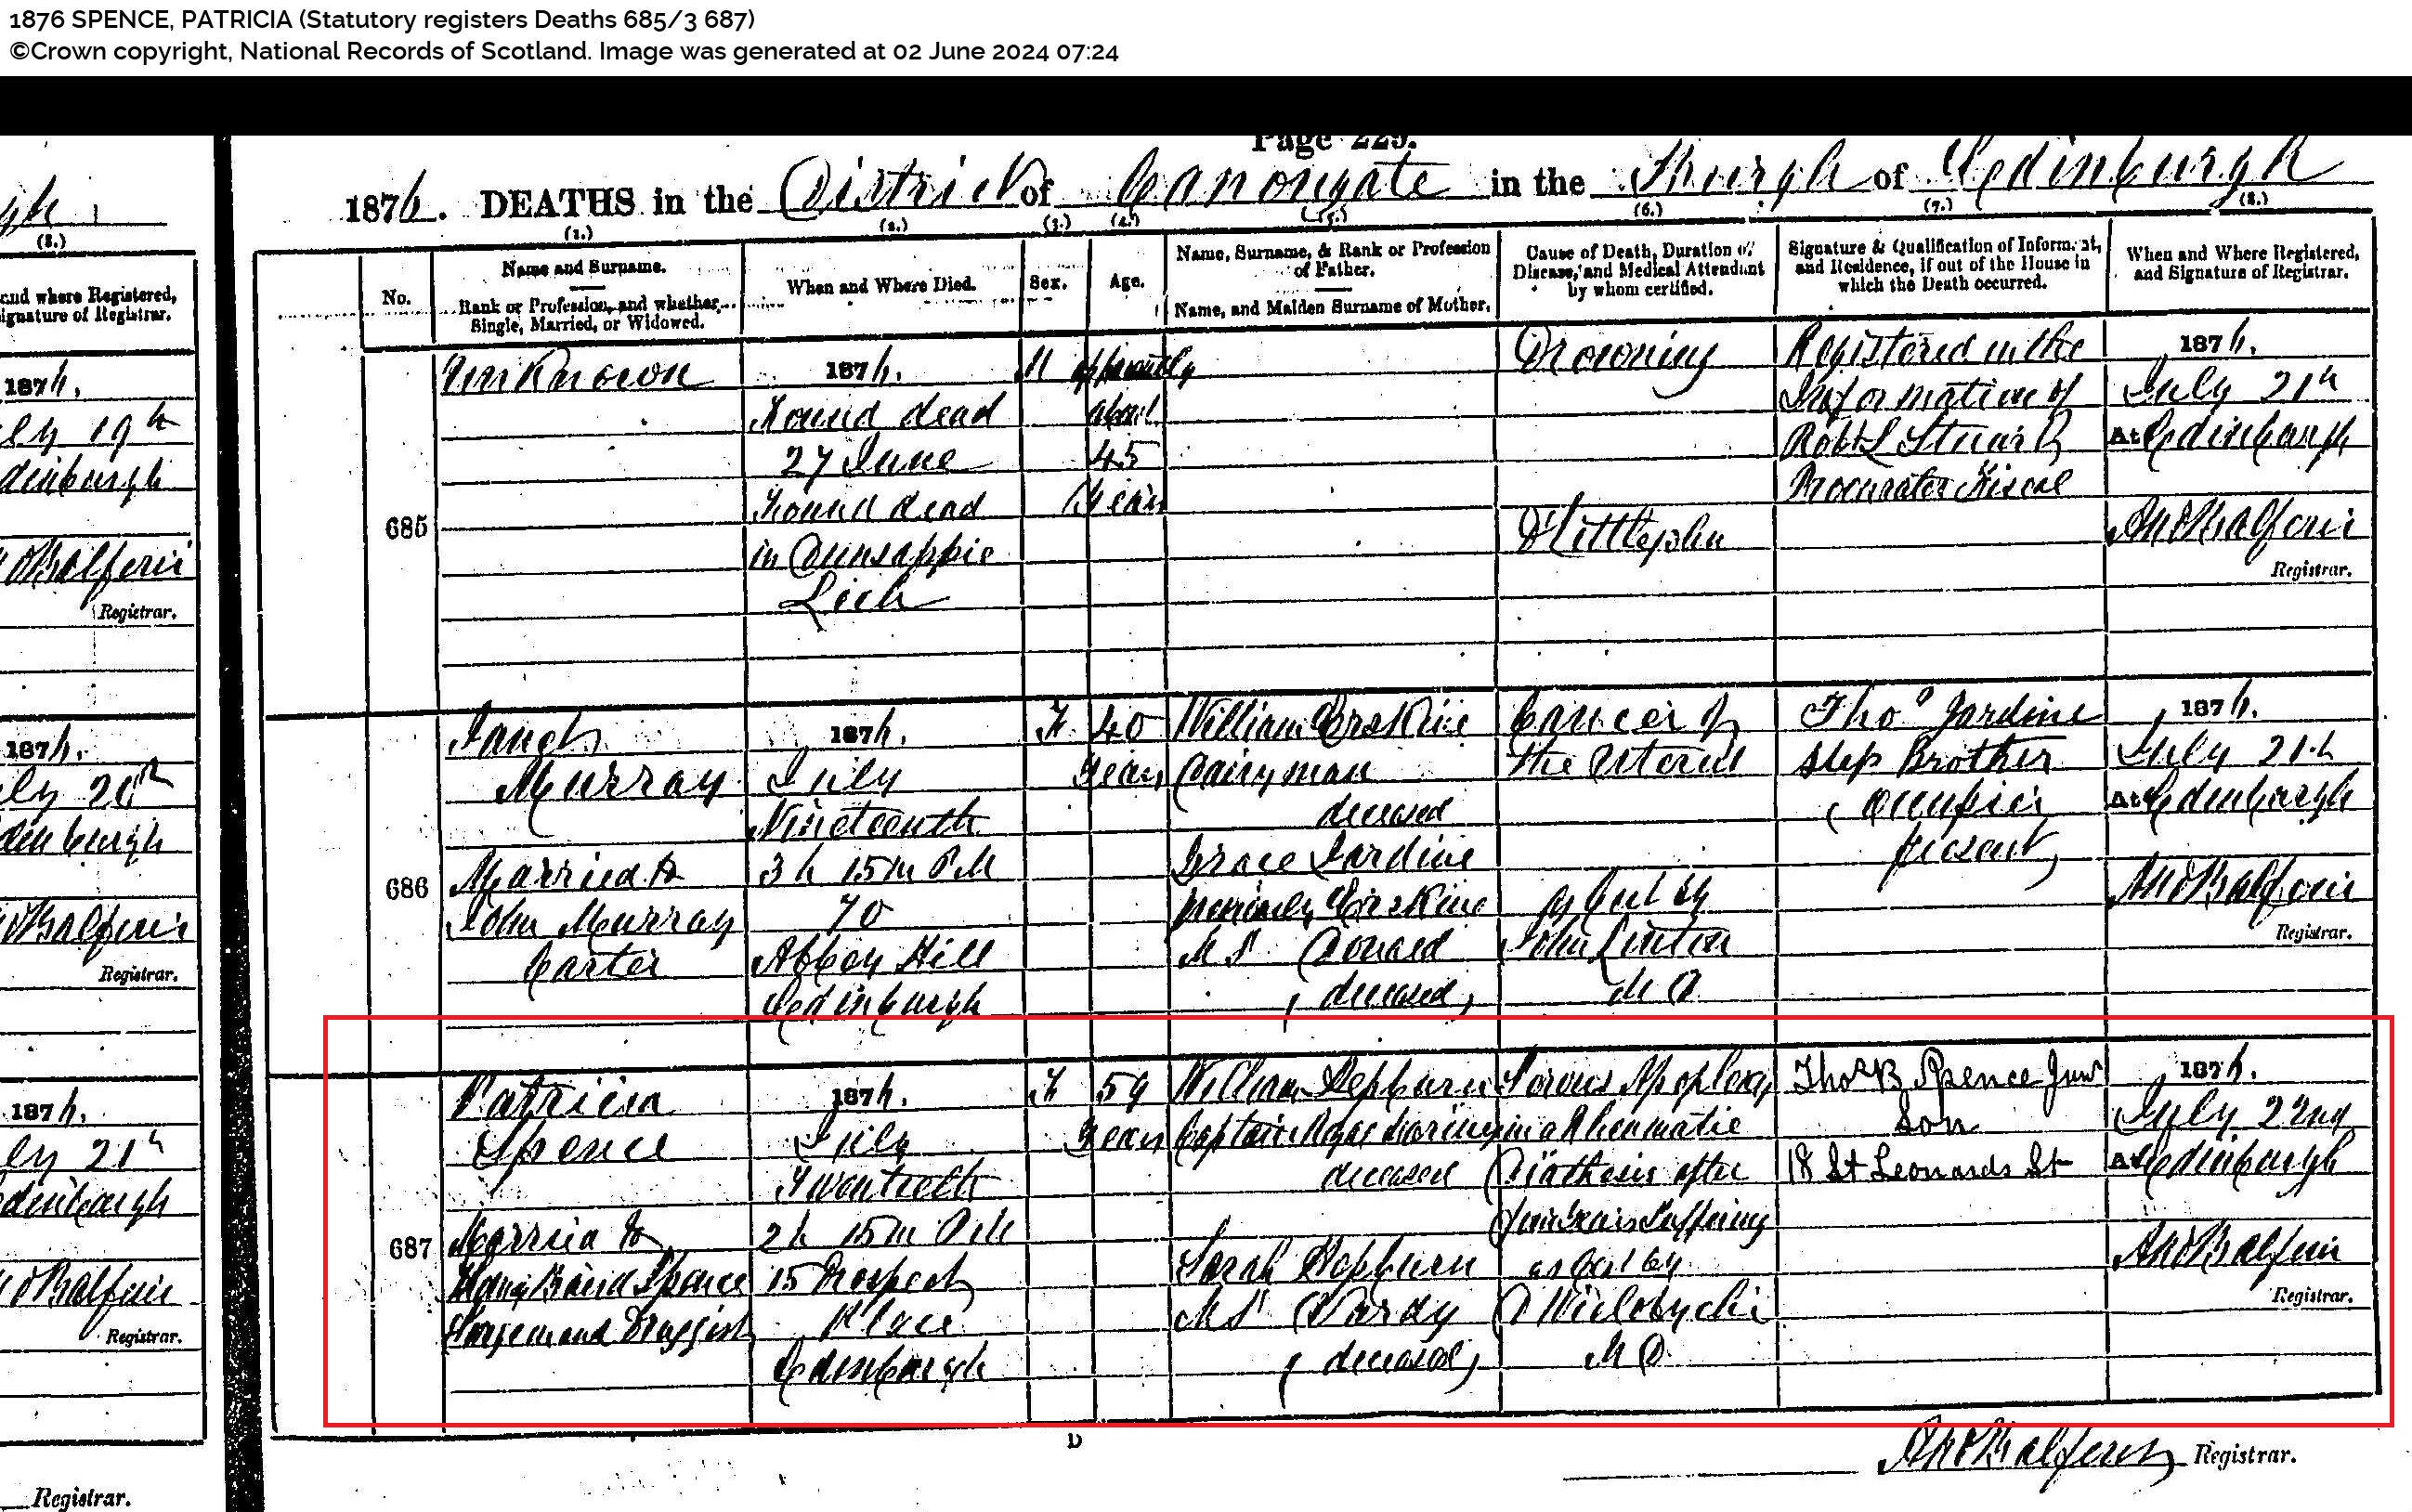 1876 SPENCE, PATRICIA (Statutory registers Deaths 685/3 687)
©Crown copyright, National Records of Scotland. Image was generated at 02 June 2024 07:24
Page 229.
1876. DEATHS in the District of Canongate in the Burgh of Edinburgh
(1.) (2.) (3.) (4.) (5.) (6.) (7.) (8.)
No.
Name and Surname.
Rank or Profession, and whether
Single, Married, or Widowed.
When and Where Died.
Sex.
Age.
Name, Surname, & Rank or Profession
of Father.
Name, and Maiden Surname of Mother.
Cause of Death, Duration of
Disease, and Medical Attendant
by whom certified.
Signature & Qualification of Informant,
and Residence, if out of the House in
which the Death occurred.
When and Where Registered,
and Signature of Registrar.
685
Unknown
1876.
Found dead
27 June
Found dead
in Dunsappie
Loch
M
apparently
about
45
Years
Drowning
Littlejohn
Registered on the
Information of
Stuart
Procurator Fiscal
1876.
July 21st
At Edinburgh
Balfour
Registrar.
686
Janet
Murray
Married to
John Murray
Carter
1876.
July
Nineteenth
3 h 15 m PM
70
Abbey Hill
Edinburgh
F
40
Years
William Erskine
Dairyman
deceased
Grace Jardine
formerly Erskine
MS Donald
(deceased)
Cancer of
the Uterus
as Cert by
John Linton
MD
Thos Jardine
Step Brother
(Occupier
present)
1876.
July 21st
At Edinburgh
Balfour
Registrar.
687
Patricia
Spence
Married to
Baird Spence
Surgeon and Druggist
1876.
July
Twentieth
2 h 15 m PM
15 Prospect
Place
Edinburgh
F
59
Years
William Hepburn
Captain Royal Marines
deceased
Sarah Hepburn
MS Vardy
(deceased)
Serous Apoplexy
in a Rheumatic
Diathesis after
Years Suffering
as Cert by
D Wielobycki
MD
Thos B Spence Junr
Son
18 St Leonards St
1876.
July 22nd
At Edinburgh
Balfour
Registrar.
D
Balfour Registrar.